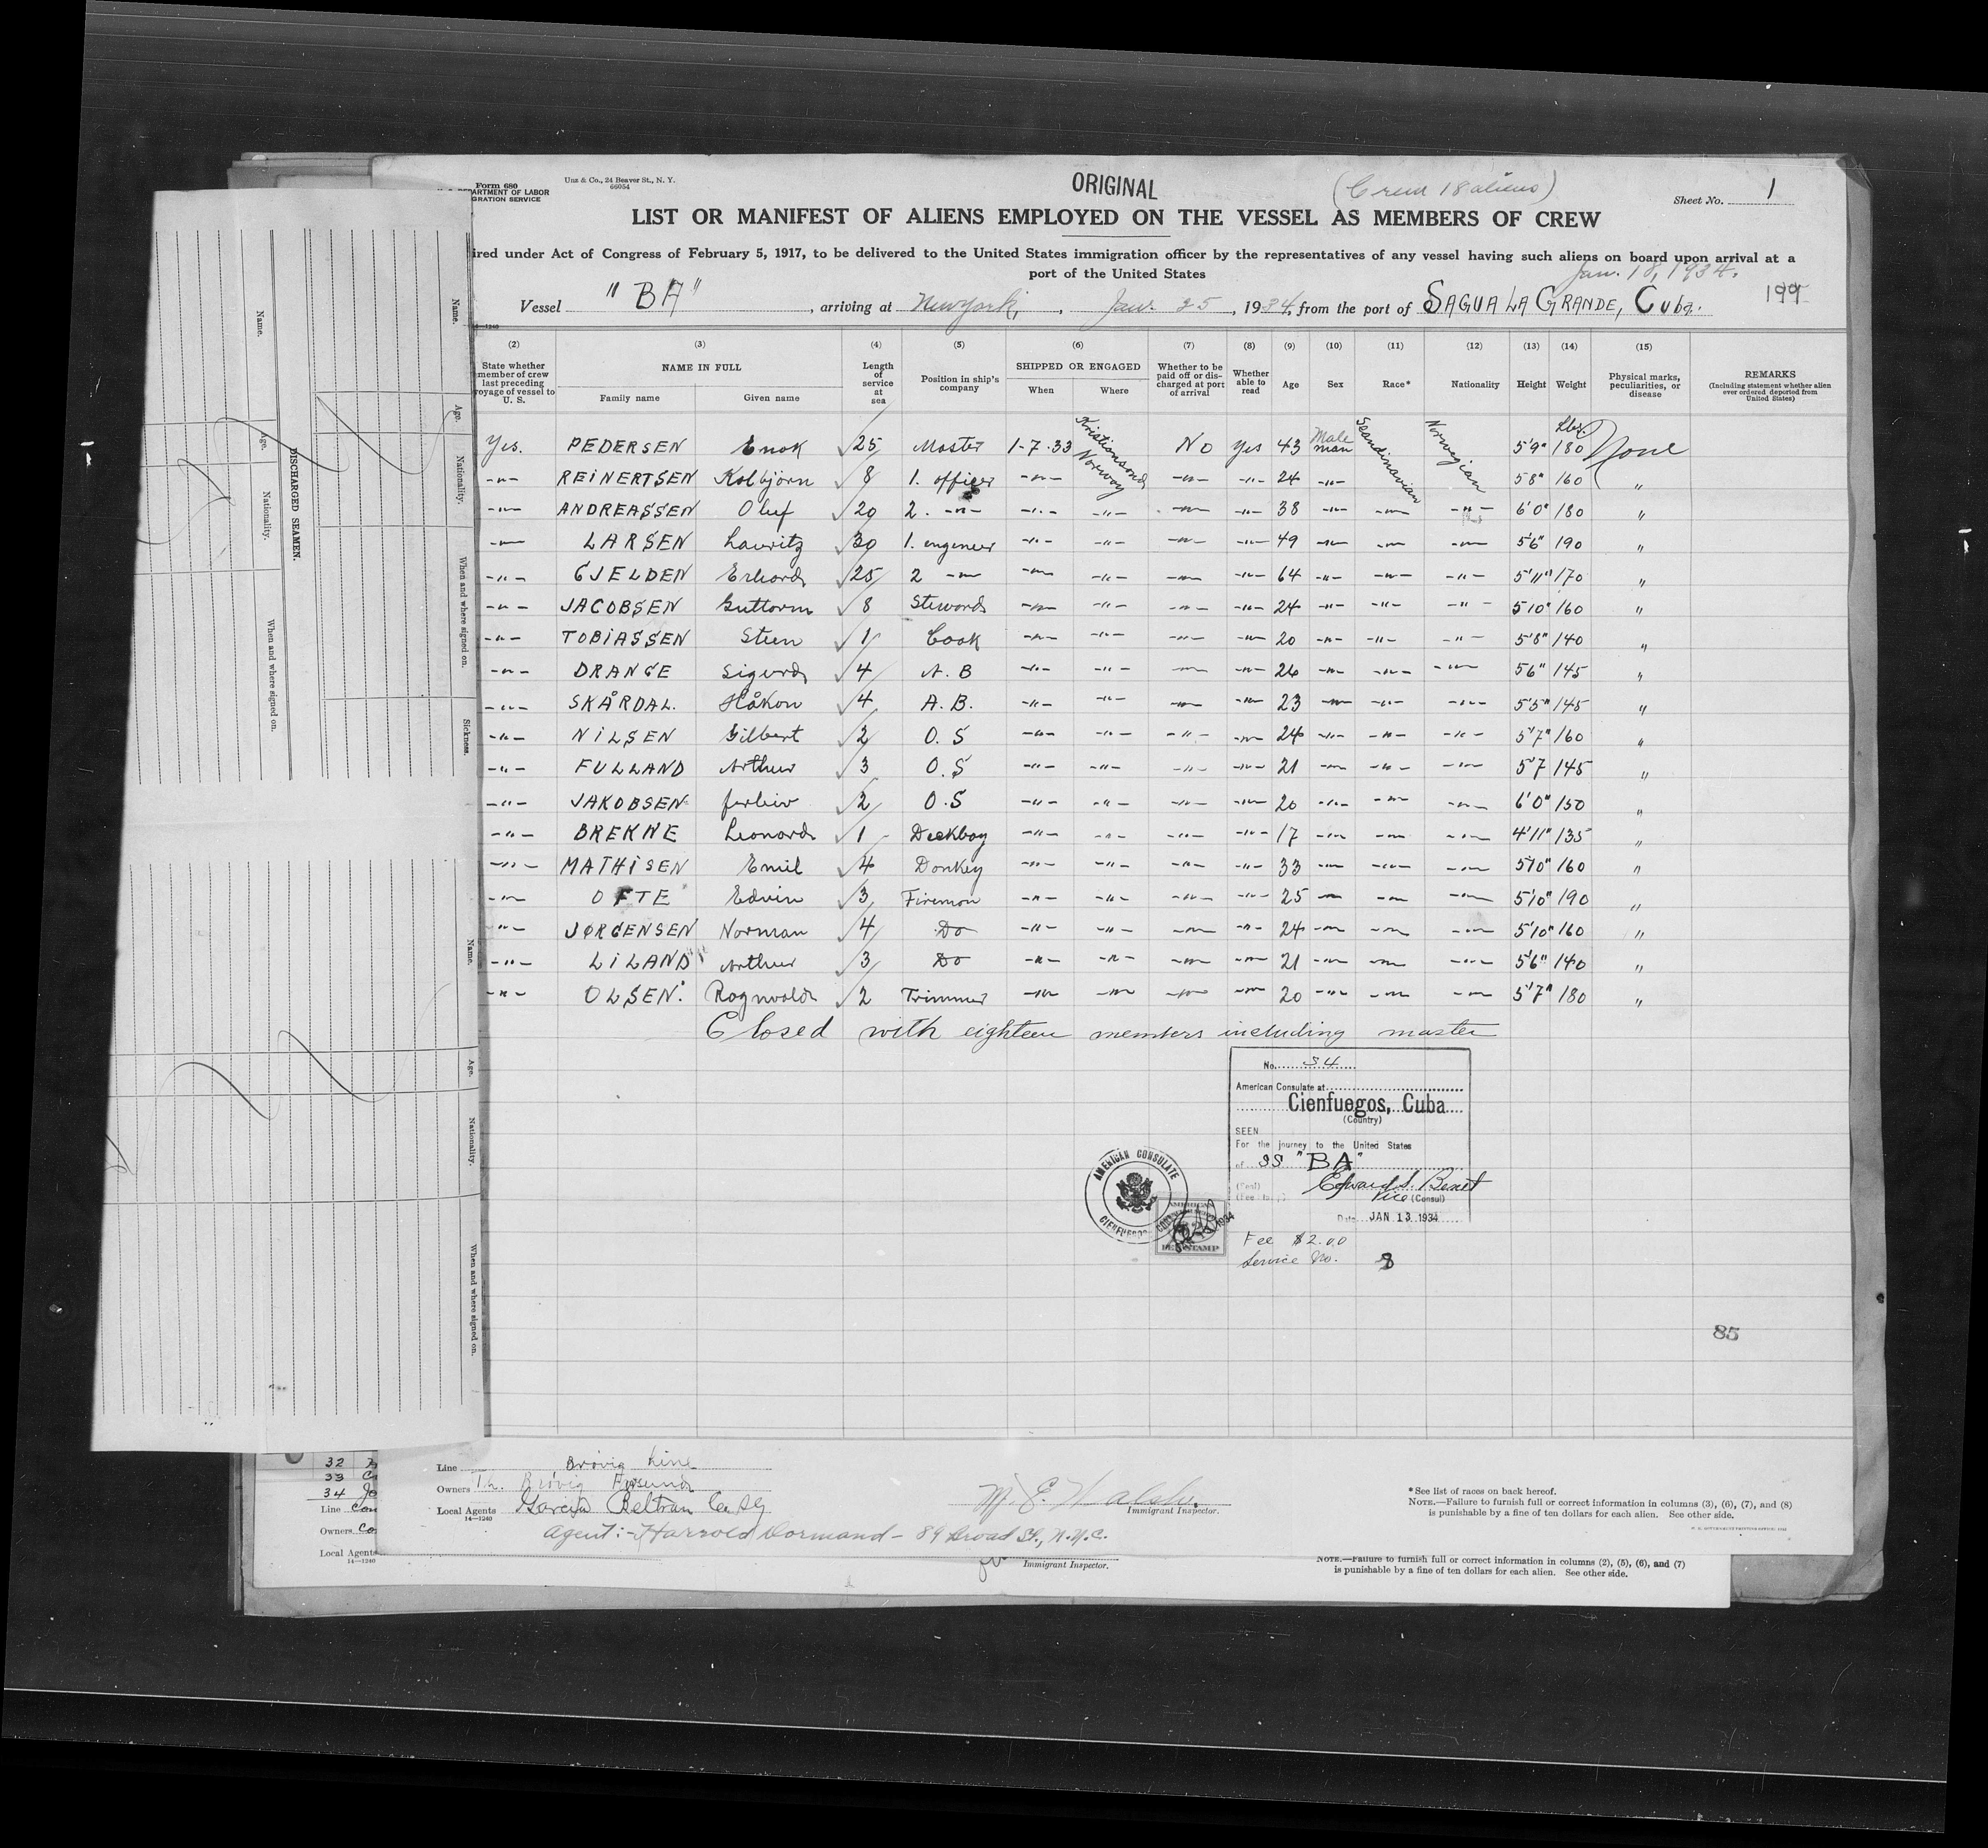 Form 680
ARTMENT OF LABOR
GRATION SERVICE
Unz & Co., 24 Beaver St., N. Y.
66054
ORIGINAL
(Crew 18 aliens)
Sheet No. 1
LIST OR MANIFEST OF ALIENS EMPLOYED ON THE VESSEL AS MEMBERS OF CREW
ired under Act of Congress of February 5, 1917, to be delivered to the United States immigration officer by the representatives of any vessel having such aliens on board upon arrival at a
port of the United States
Jan. 18, 1934.
Vessel "BA", arriving at New York, Jan. 25, 1934, from the port of SAGUA LA GRANDE, Cuba. 199
14—1240
(2) (3) (4) (5) (6) (7) (8) (9) (10) (11) (12) (13) (14) (15)
State whether member of crew last preceding voyage of vessel to U. S.
NAME IN FULL
Family name Given name
Length of service at sea
Position in ship's company
SHIPPED OR ENGAGED
When Where
Whether to be paid off or discharged at port of arrival
Whether able to read
Age Sex Race* Nationality Height Weight
Physical marks, peculiarities, or disease
REMARKS
(Including statement whether alien ever ordered deported from United States)
Lbs.
Yes. PEDERSEN Enok 25 Master 1-7-33 Kristiansand Norway No Yes 43 Male man Scandinavian Norwegian 5'9" 180 None
-"- REINERTSEN Kolbjörn 8 1. officer -"- -"- -"- 24 -"- 5'8" 160 "
-"- ANDREASSEN Oluf 20 2. -"- -"- -"- -"- -"- 38 -"- -"- -"- 6'0" 180 "
-"- LARSEN Lauritz 30 1. engeneer -"- -"- -"- -"- 49 -"- -"- -"- 5'6" 190 "
-"- GJELDEN Erhard 25 2 -"- -"- -"- -"- -"- 64 -"- -"- -"- 5'11" 170 "
-"- JACOBSEN Guttorm 8 Steward -"- -"- -"- -"- 24 -"- -"- -"- 5'10" 160 "
-"- TOBIASSEN Steen 1 Cook -"- -"- -"- -"- 20 -"- -"- -"- 5'8" 140 "
-"- DRANGE Sigurd 4 A. B -"- -"- -"- -"- 26 -"- -"- -"- 5'6" 145 "
-"- SKÅRDAL. Håkon 4 A. B. -"- -"- -"- -"- 23 -"- -"- -"- 5'5" 145 "
-"- NILSEN Gilbert 2 O. S -"- -"- -"- -"- 24 -"- -"- -"- 5'7" 160 "
-"- FULLAND Arthur 3 O. S -"- -"- -"- -"- 21 -"- -"- -"- 5'7 145 "
-"- JAKOBSEN 2 O. S -"- -"- -"- -"- 20 -"- -"- -"- 6'0" 150 "
-"- BREKNE Leonard 1 Deckboy -"- -"- -"- -"- 17 -"- -"- -"- 4'11" 135 "
-"- MATHISEN Emil 4 Donkey -"- -"- -"- -"- 33 -"- -"- -"- 5'10" 160 "
-"- OFTE Edvin 3 Fireman -"- -"- -"- -"- 25 -"- -"- -"- 5'10" 190 "
-"- JØRGENSEN Norman 4 Do -"- -"- -"- -"- 24 -"- -"- -"- 5'10" 160 "
-"- LILAND Arthur 3 Do -"- -"- -"- -"- 21 -"- -"- -"- 5'6" 140 "
-"- OLSEN. Ragnvald 2 Trimmer -"- -"- -"- -"- 20 -"- -"- -"- 5'7" 180 "
Closed with eighteen members including master
No. 34
American Consulate at
Cienfuegos, Cuba
(Country)
SEEN
For the journey to the United States
of SS "BA"
Edward S. Benet
Vice (Consul)
Date JAN 13 1934
Fee $2.00
Service No. 8
AMERICAN CONSULATE
CIENFUEGOS
FEE STAMP
85
Line Brövig Line
Owners Th. Brövig Farsund
Local Agents Garcia Beltran Co
14—1240
Agent:- Harrold Dormand - 89 Broad St., N.Y.C.
M. E. Walsh.
Immigrant Inspector.
*See list of races on back hereof.
NOTE.—Failure to furnish full or correct information in columns (3), (6), (7), and (8)
is punishable by a fine of ten dollars for each alien. See other side.
32
33
34
Line
Owners
Local Agents
14—1240
Immigrant Inspector.
NOTE.—Failure to furnish full or correct information in columns (2), (5), (6), and (7)
is punishable by a fine of ten dollars for each alien. See other side.
DISCHARGED SEAMEN.
Name. Age. Nationality. When and where signed on. Sickness.
Name. Age. Nationality. When and where signed on.
Name. Age. Nationality. When and where signed on.